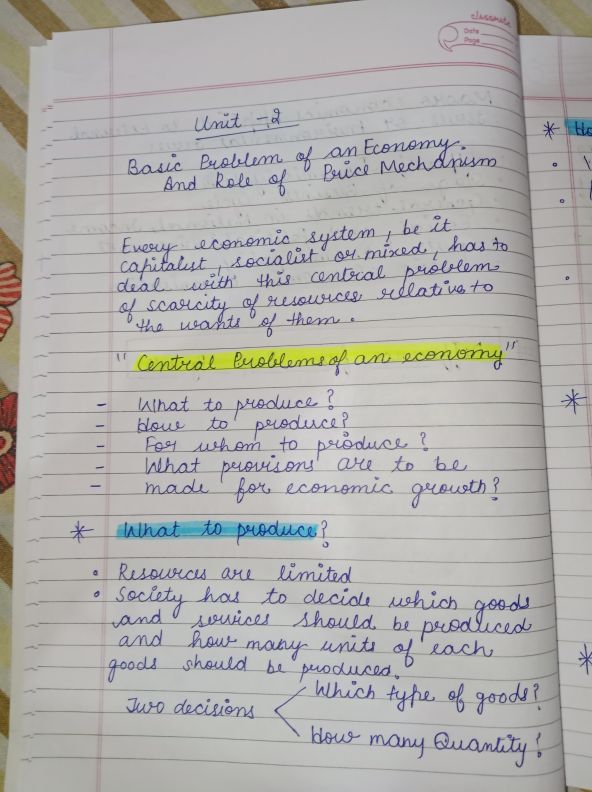 classmate
Date
Page
Unit - 2
Basic Problem of an Economy.
And Role of Price Mechanism
Every economic system, be it
capitalist, socialist or mixed, has to
deal with this central problem
of scarcity of resources relative to
the wants of them.
"Central Problems of an economy"
- What to produce?
- How to produce?
- For whom to produce?
- What provisons are to be
- made for economic growth?
* What to produce?
• Resources are limited
• Society has to decide which goods
and services should be produced
and how many units of each
goods should be produced.
Two decisions
Which type of goods?
How many Quantity?
* Ho
*
*